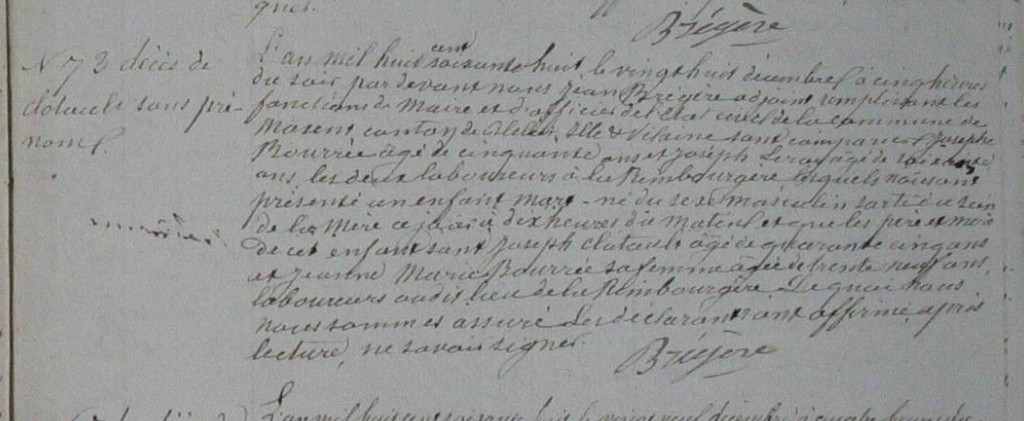 Brégère
N 73 décès de
clotault sans pré-
nom.
L'an mil huit cent soixante huit, le vingt huit décembre, à cinq heures
du soir, par devant nous Jean Brégère adjoint remplissant les
fonctions de Maire et d'officier de l'état civil de la commune de
Maxent, canton de Plélan, Ille & Vilaine sont comparus Joseph
Bourrée âgé de cinquante ans et Joseph Leray âgé de soixante
ans, les deux laboureurs à la Rembourgère, lesquels nous ont
présenté un enfant mort-né du sexe masculin sorti du sein
de la Mère ce jour à dix heures du Matin et que les père et mère
de cet enfant sont Joseph clotault âgé de quarante cinq ans
et Jeanne Marie Bourrée sa femme âgée de trente neuf ans,
laboureurs audit lieu de la Rembourgère De quoi nous
nous sommes assuré. Les déclarants ont affirmé, après
lecture, ne savoir signer.
Brégère
L'an mil huit cent soixante huit le vingt neuf décembre à quatre heures du